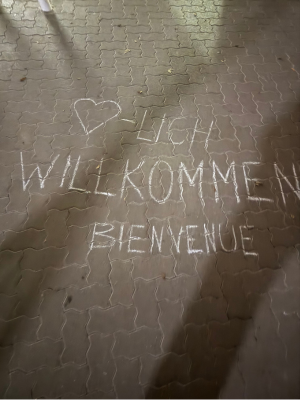 ♡-LICH
WILLKOMMEN
BIENVENUE